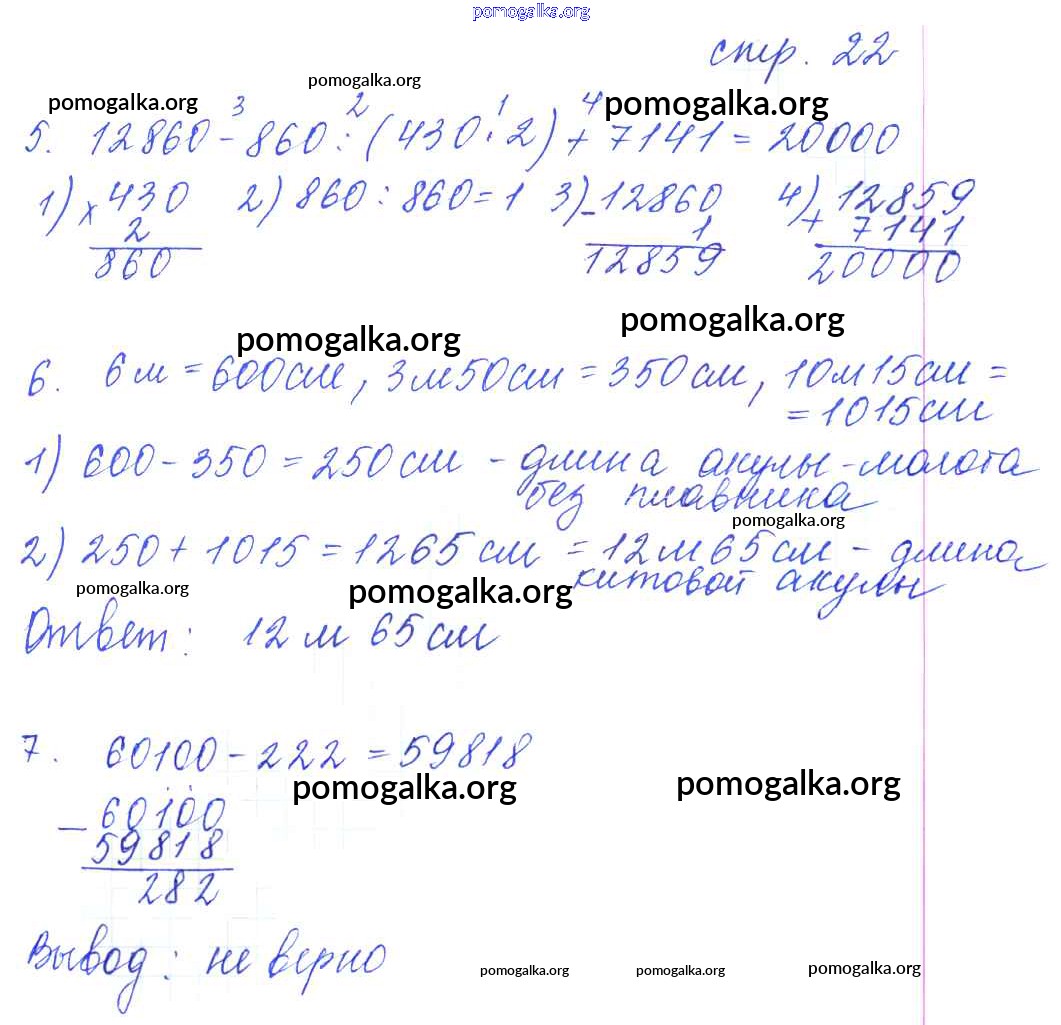 pomogalka.org
стр. 22
pomogalka.org
pomogalka.org pomogalka.org
3 2 1 4
5. 12860 - 860 : (430 · 2) + 7141 = 20000
1) × 430 2) 860 : 860 = 1 3) - 12860 4) + 12859
2 1 7141
860 12859 20000
pomogalka.org pomogalka.org
6. 6 м = 600 см, 3 м 50 см = 350 см, 10 м 15 см =
= 1015 см
1) 600 - 350 = 250 см - длина акулы-молота
без плавника
pomogalka.org
2) 250 + 1015 = 1265 см = 12 м 65 см - длина
китовой акулы
pomogalka.org pomogalka.org
Ответ: 12 м 65 см
7. 60100 - 222 = 59818
pomogalka.org pomogalka.org
- 60100
59818
282
Вывод: не верно
pomogalka.org pomogalka.org pomogalka.org